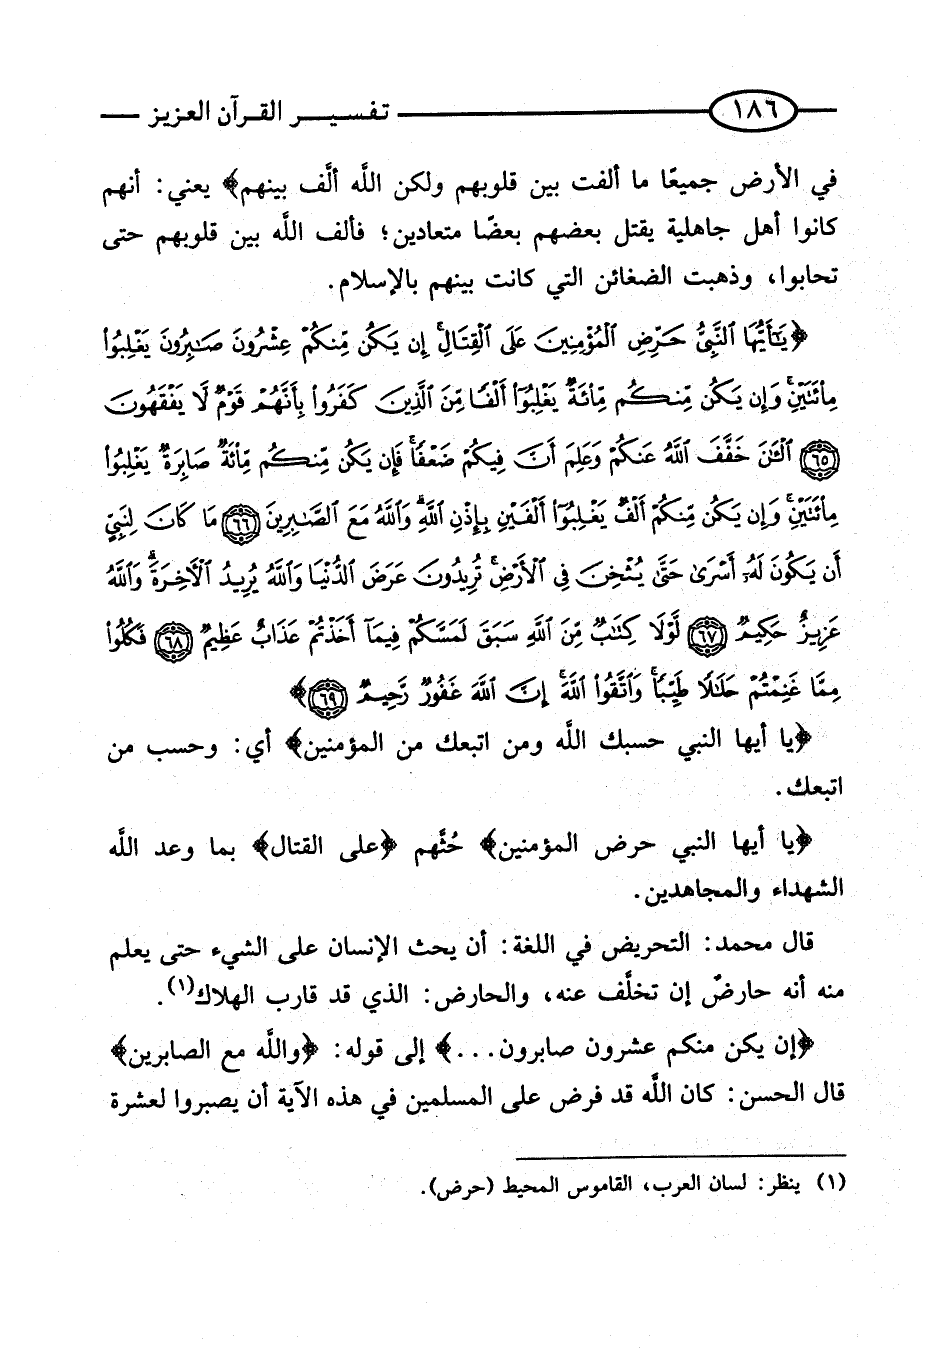 ١٨٦ تفسير القرآن العزيز
في الأرض جميعًا ما ألفت بين قلوبهم ولكن اللَّه ألَّف بينهم﴾ يعني: أنهم
كانوا أهل جاهلية يقتل بعضهم بعضًا متعادين؛ فألف اللَّه بين قلوبهم حتى
تحابوا، وذهبت الضغائن التي كانت بينهم بالإسلام.
﴿يَٰٓأَيُّهَا ٱلنَّبِىُّ حَرِّضِ ٱلْمُؤْمِنِينَ عَلَى ٱلْقِتَالِ ۚ إِن يَكُن مِّنكُمْ عِشْرُونَ صَٰبِرُونَ يَغْلِبُوا۟
مِا۟ئَتَيْنِ ۚ وَإِن يَكُن مِّنكُم مِّا۟ئَةٌ يَغْلِبُوٓا۟ أَلْفًا مِّنَ ٱلَّذِينَ كَفَرُوا۟ بِأَنَّهُمْ قَوْمٌ لَّا يَفْقَهُونَ
٦٥ ٱلْـَٰٔنَ خَفَّفَ ٱللَّهُ عَنكُمْ وَعَلِمَ أَنَّ فِيكُمْ ضَعْفًا ۚ فَإِن يَكُن مِّنكُم مِّا۟ئَةٌ صَابِرَةٌ يَغْلِبُوا۟
مِا۟ئَتَيْنِ ۚ وَإِن يَكُن مِّنكُمْ أَلْفٌ يَغْلِبُوٓا۟ أَلْفَيْنِ بِإِذْنِ ٱللَّهِ ۗ وَٱللَّهُ مَعَ ٱلصَّٰبِرِينَ ٦٦ مَا كَانَ لِنَبِىٍّ
أَن يَكُونَ لَهُۥٓ أَسْرَىٰ حَتَّىٰ يُثْخِنَ فِى ٱلْأَرْضِ ۚ تُرِيدُونَ عَرَضَ ٱلدُّنْيَا وَٱللَّهُ يُرِيدُ ٱلْـَٔاخِرَةَ ۗ وَٱللَّهُ
عَزِيزٌ حَكِيمٌ ٦٧ لَّوْلَا كِتَٰبٌ مِّنَ ٱللَّهِ سَبَقَ لَمَسَّكُمْ فِيمَآ أَخَذْتُمْ عَذَابٌ عَظِيمٌ ٦٨ فَكُلُوا۟
مِمَّا غَنِمْتُمْ حَلَٰلًا طَيِّبًا ۚ وَٱتَّقُوا۟ ٱللَّهَ ۚ إِنَّ ٱللَّهَ غَفُورٌ رَّحِيمٌ ٦٩﴾
﴿يا أيها النبي حسبك اللَّه ومن اتبعك من المؤمنين﴾ أي: وحسب من
اتبعك.
﴿يا أيها النبي حرض المؤمنين﴾ حُثَّهم ﴿على القتال﴾ بما وعد اللَّه
الشهداء والمجاهدين.
قال محمد: التحريض في اللغة: أن يحث الإنسان على الشيء حتى يعلم
منه أنه حارضٌ إن تخلَّف عنه، والحارض: الذي قد قارب الهلاك(١).
﴿إن يكن منكم عشرون صابرون...﴾ إلى قوله: ﴿واللَّه مع الصابرين﴾
قال الحسن: كان اللَّه قد فرض على المسلمين في هذه الآية أن يصبروا لعشرة
(١) ينظر: لسان العرب، القاموس المحيط (حرض).